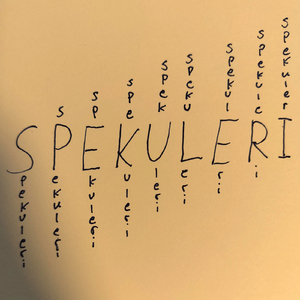 SPEKULERI
Spekuleri
sPekuleri
spEkuleri
speKuleri
spekUleri
spekuLeri
spekulEri
spekuleRi
spekulerI